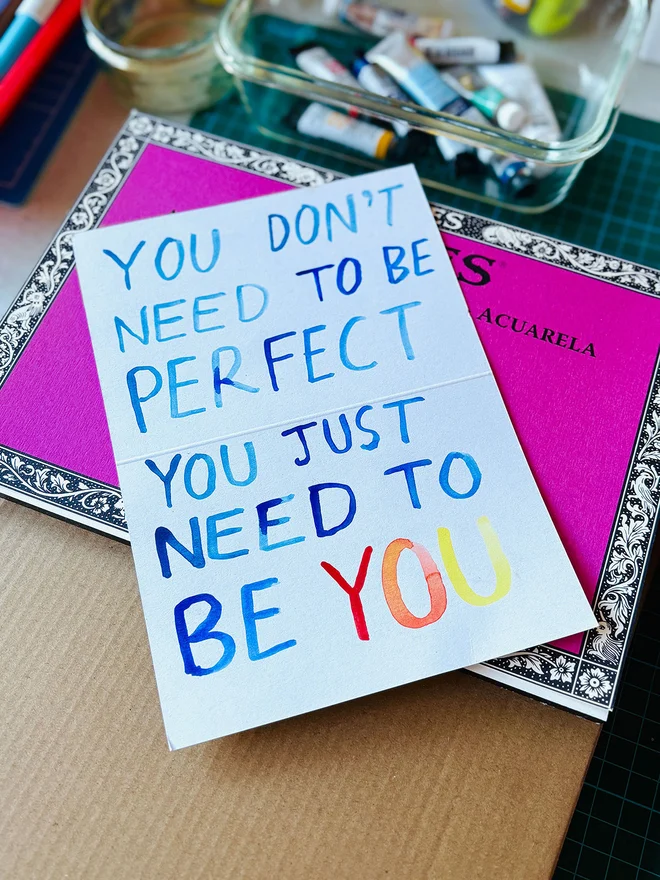 YOU DON'T
NEED TO BE
PERFECT
YOU JUST
NEED TO
BE YOU
ACUARELA